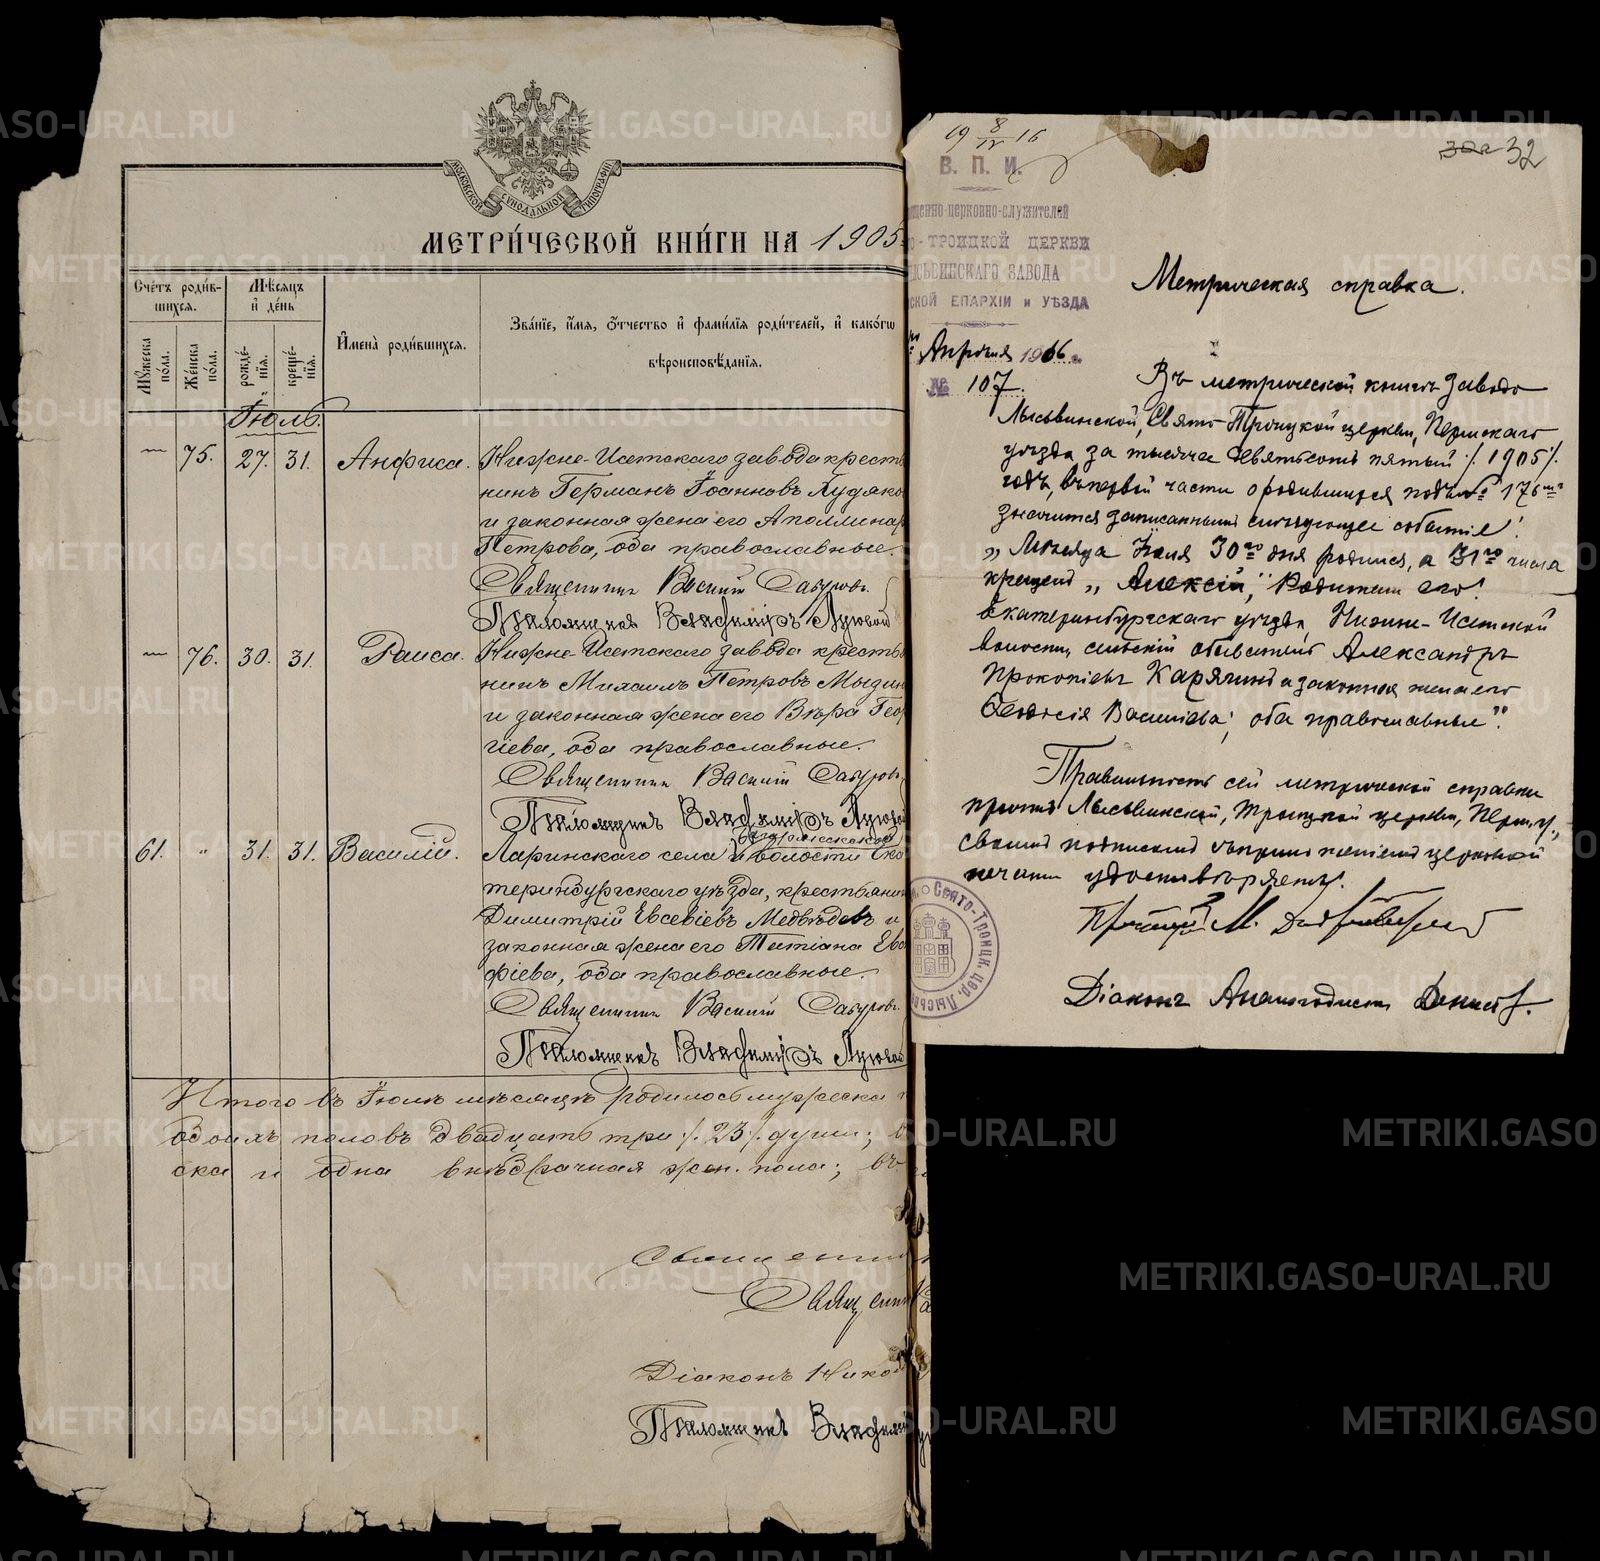 МОСКОВСКОЙ СѴНОДАЛЬНОЙ ТИПОГРАФІИ
МЕТРИ́ЧЕСКОЙ КНИ́ГИ НА 1905
Сче́тъ роди́в-
шихся.
Мѣ́сяцъ
и҆ де́нь
И҆мена̀ роди́вшихся.
Зва́нїе, и҆́мя, ѻ҆́тчество и҆ фами́лїя роди́телей, и҆ како́гѡ
вѣроисповѣ́данїя.
Мꙋ́жеска
по́ла.
Же́нска
по́ла.
рожде́-
нїя.
креще́-
нїя.
Іюль.
— 75. 27. 31. Анфиса. Нижне-Исетскаго завода кресть
нинъ Германъ Іоанновъ Худяко
и законная жена его Аполлинар
Петрова, оба православные.
Священникъ Василій Сабуровъ.
Псаломщикъ Владиміръ Луговой
— 76. 30. 31. Раиса. Нижне-Исетскаго завода кресть
нинъ Михаилъ Петровъ Мызни
и законная жена его Вѣра Геор
гіева, оба православные.
Священникъ Василій Сабуровъ
Псаломщикъ Владиміръ Луговой
61. " 31. 31. Василій. Ларинскаго села и волости Ека
теринбургскаго уѣзда, крестьянин
Димитрій Евсевіевъ Медвѣдевъ и
законная жена его Татіана Евс
фіева, оба православные.
Священникъ Василій Сабуровъ.
Псаломщикъ Владиміръ Лугово
Итого въ Іюлѣ мѣсяцѣ родилось мужеска
обоихъ половъ двадцать три /.23/. души;
ска и одна внѣбрачная жен. пола; въ
Священни
Священни
Діаконъ Нико
Псаломщикъ Владимі
19 8/IV 16
32
В. П. И.
щенно-церковно-служителей
о-ТРОИЦКОЙ ЦЕРКВИ
ЫСЬВИНСКАГО ЗАВОДА
СКОЙ ЕПАРХІИ и УѢЗДА
Апрѣля 1916 г.
№ 107.
Метрическая справка.
Въ метрической книгѣ завода
Лысьвинской, Свято-Троицкой церкви, Пермскаго
уѣзда за тысяча девятьсотъ пятый /.1905/.
годъ, въ первой части о родившихся подъ № 176-мъ
значится записаннымъ слѣдующее событіе:
"Мѣсяца Іюля 30го дня родился, а 31го числа
крещенъ "Алексій", Родители его:
Екатеринбургскаго уѣзда, Нижне-Исетской
волости, сельскій обыватель Александръ
Прокопіевъ Карягинъ и законная жена его
Ѳеодосія Василіева; оба православные".
Правильность сей метрической справки
причтъ Лысьвинской, Троицкой церкви, Перм. у.,
своимъ подписомъ съ приложеніемъ церковной
печати удостовѣряетъ.
Протоіерей М.
Діаконъ Аполлодистъ
Свято-Троицк. цер. Лысьв
METRIKI.GASO-URAL.RU